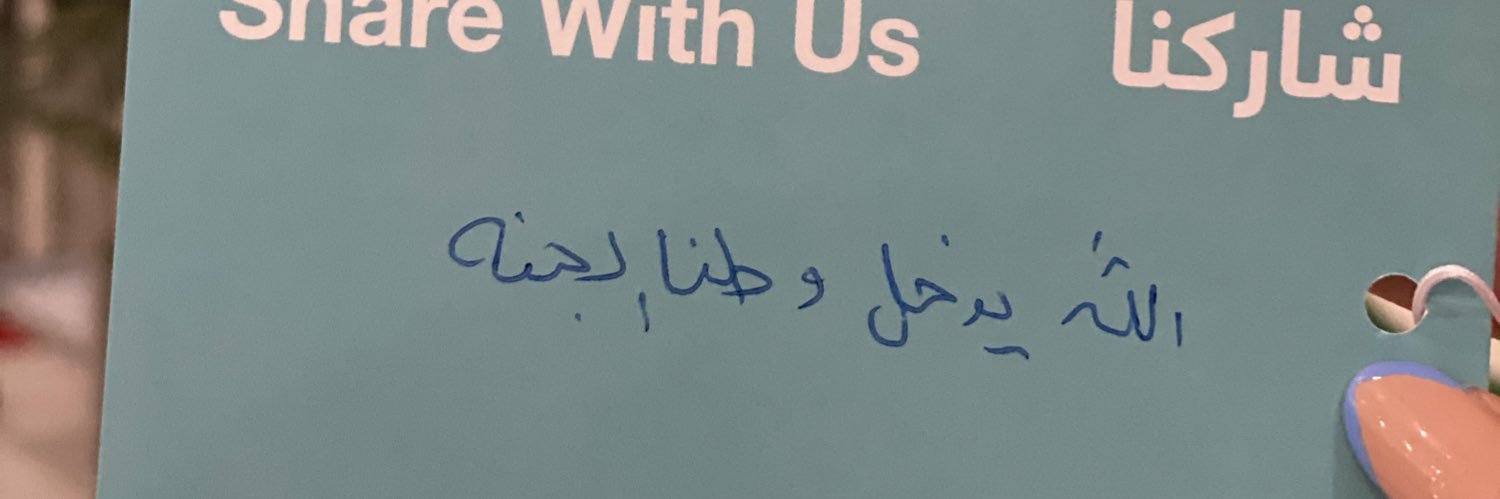 Share With Us شاركنا
الله يدخل وطنا لجنه